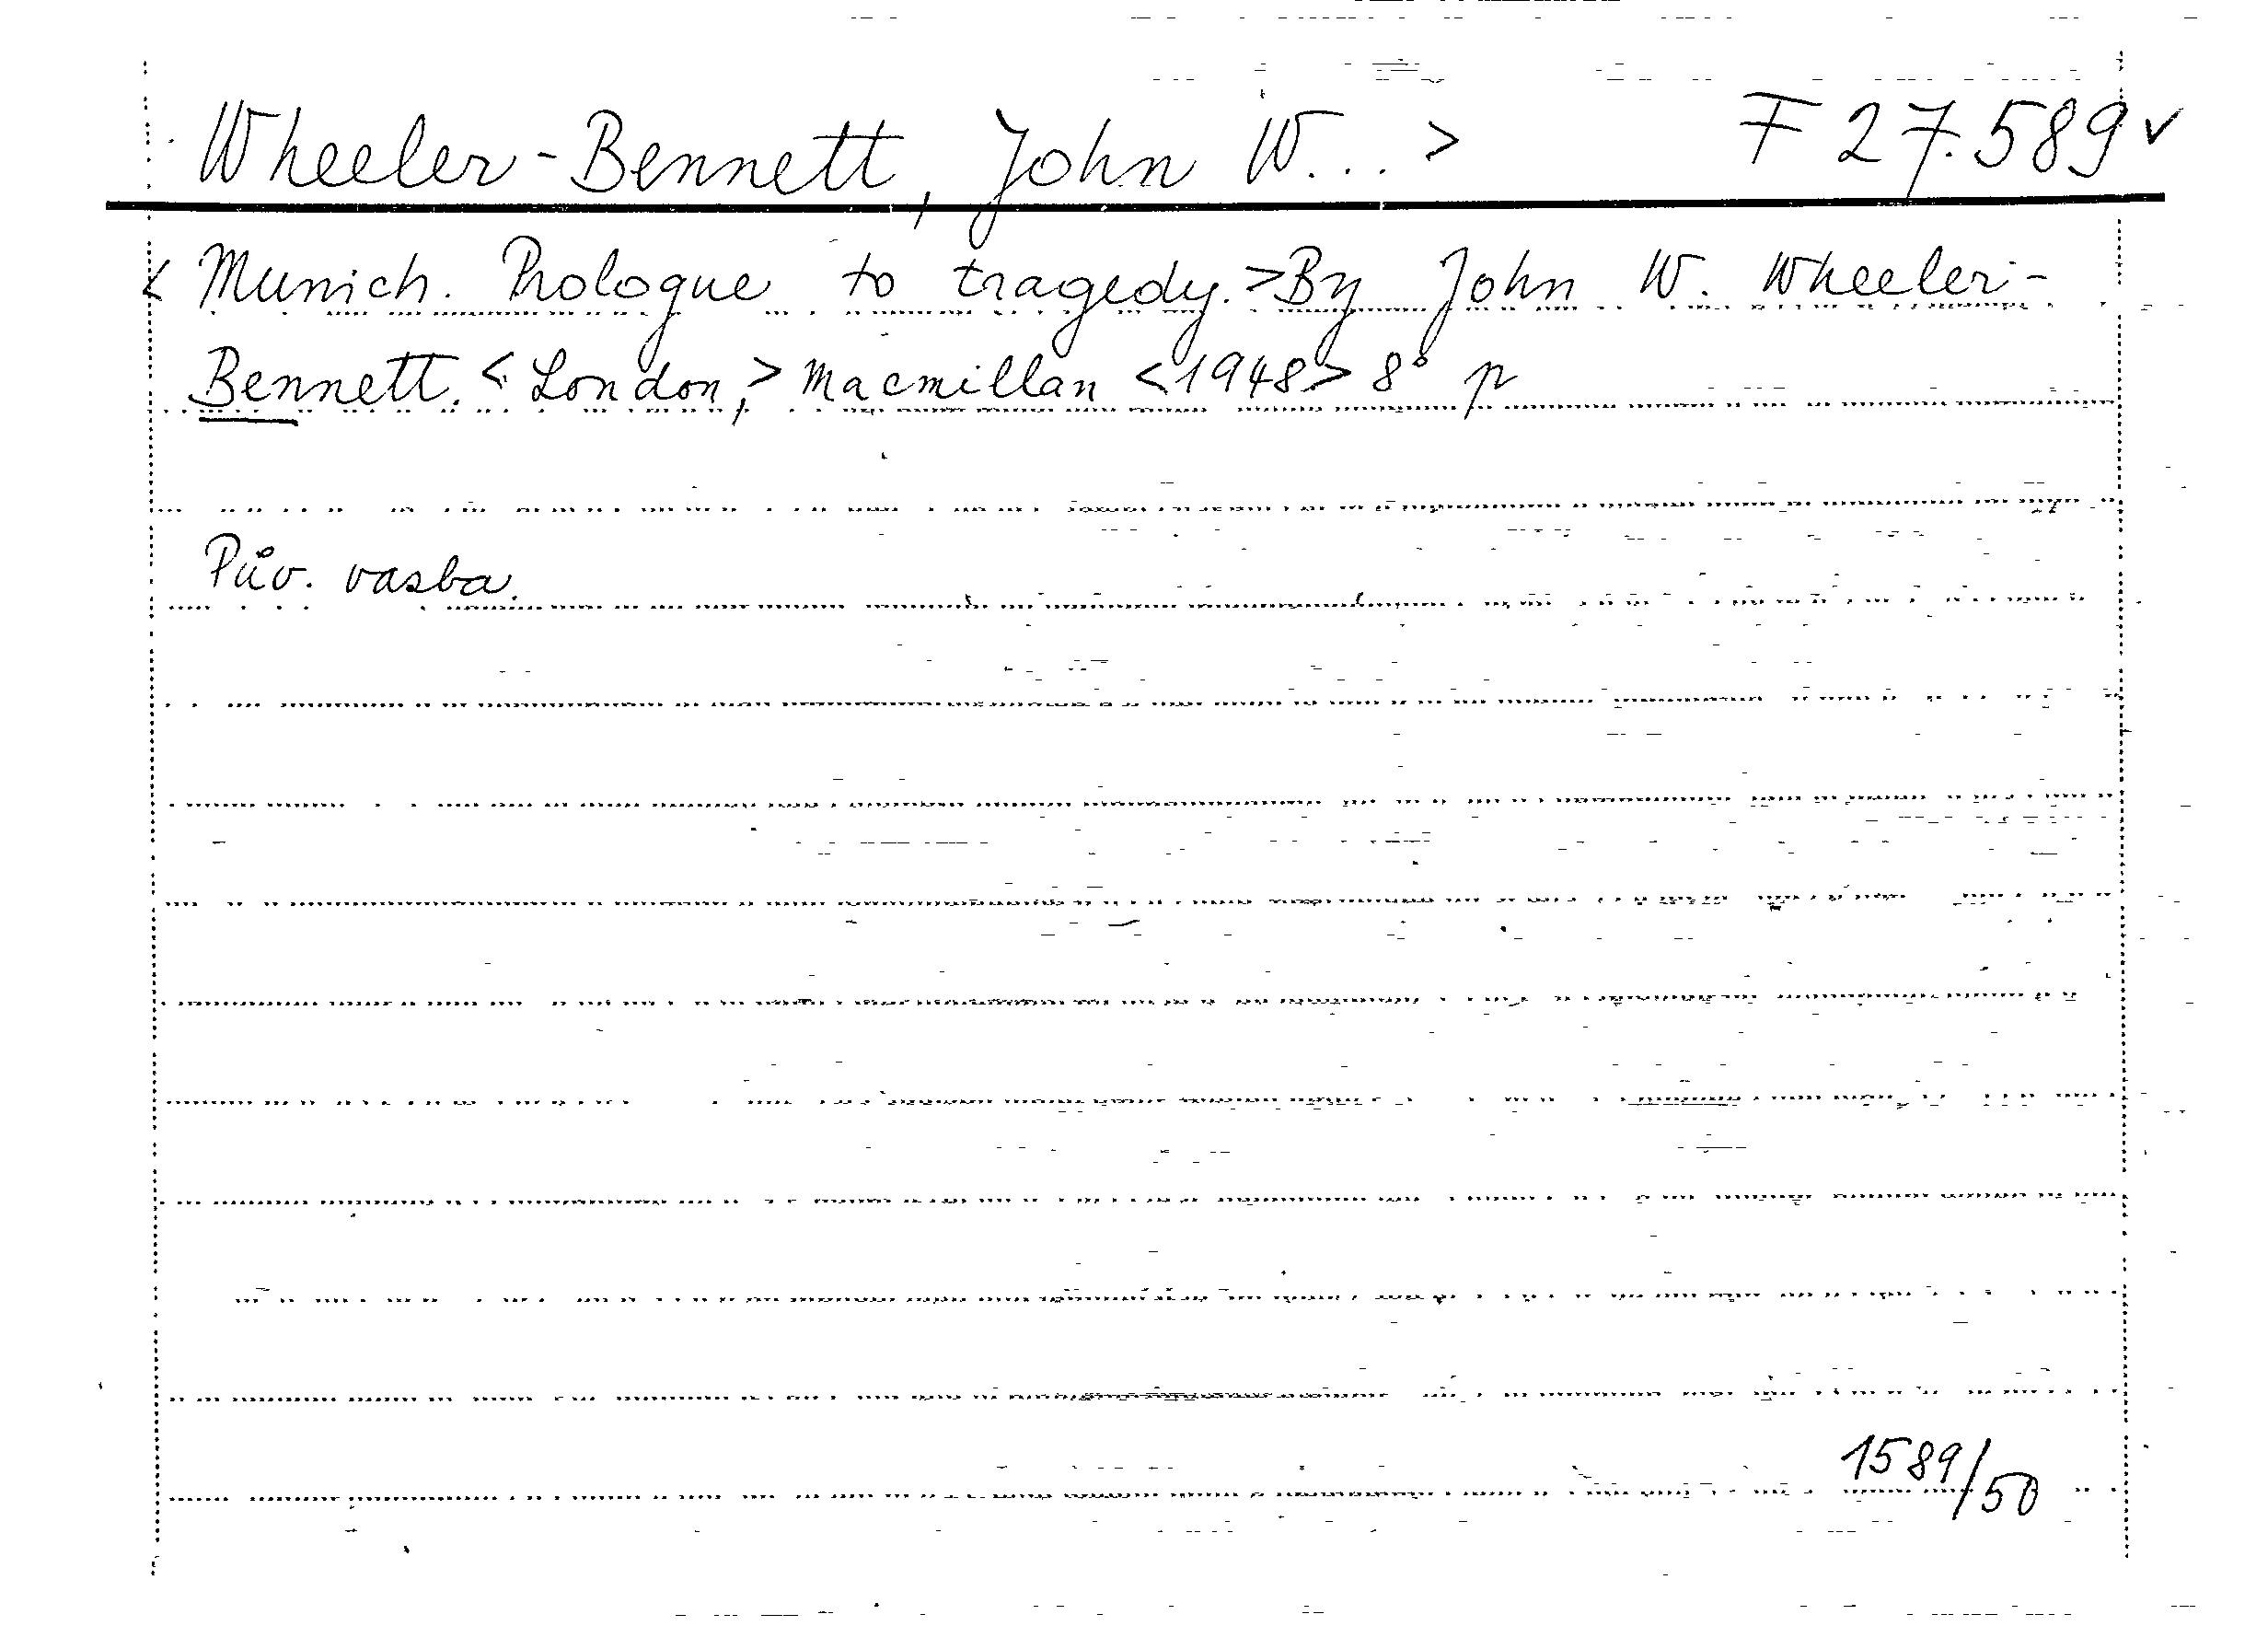 Wheeler-Bennett, John W... > F 27.589 v
< Munich. Prologue to tragedy. > By John W. Wheeler-
Bennett. < London, > Macmillan < 1948 > 8° p
Pův. vasba.
1589/50